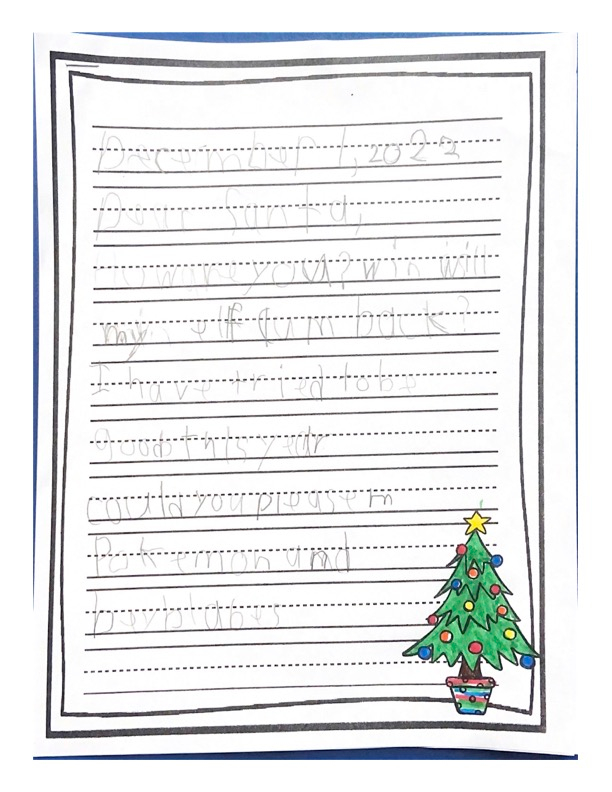 December 1, 2022
Dear Santa,
How are you? win will
my elf cum back?
I have tried to be
good this year
could you please m
Pokemon and
beyblabes